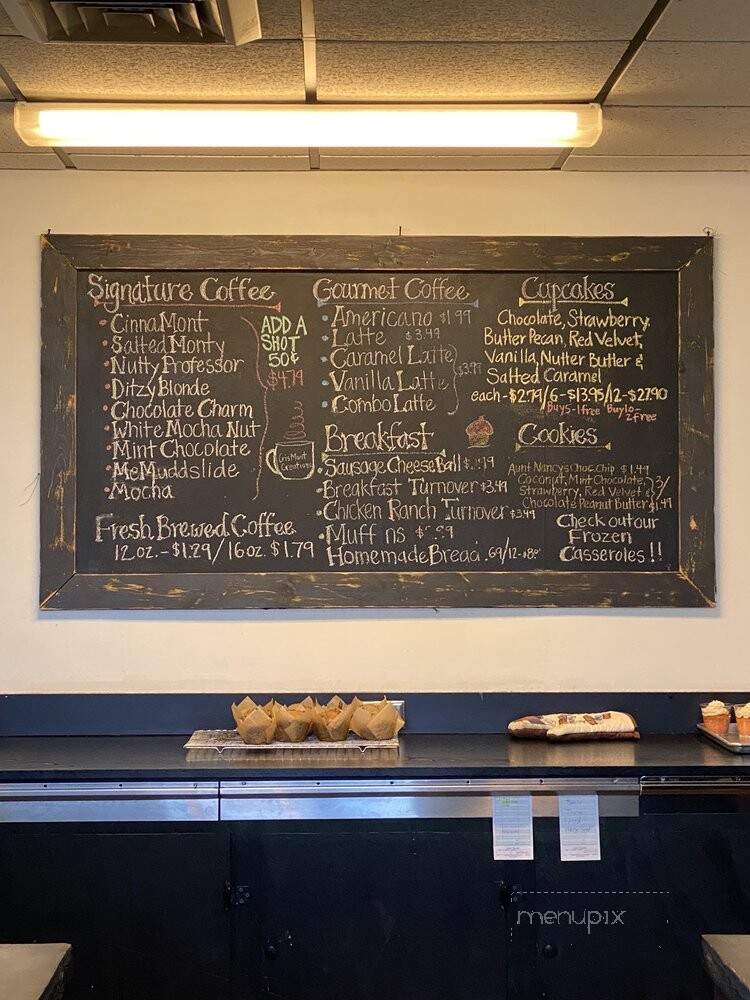 Signature Coffee
CinnaMont
Salted Monty
Nutty Professor
Ditzy Blonde
Chocolate Charm
White Mocha Nut
Mint Chocolate
MeMuddslide
Mocha
ADD A
SHOT
50¢
$4.79
CrisMont
Creations
Fresh Brewed Coffee
12 oz. - $1.29/16oz. $1.79
Gourmet Coffee
Americano $1.99
Latte $3.49
Caramel Latte
Vanilla Latte
Combo Latte
$3.99
Breakfast
Sausage Cheese Ball
Breakfast Turnover $3.49
Chicken Ranch Turnover $3.49
Muffins
Homemade Bread
Cupcakes
Chocolate, Strawberry,
Butter Pecan, Red Velvet,
Vanilla, Nutter Butter &
Salted Caramel
each - $2.79/6 - $13.95/12 - $27.90
Buy 5 - 1 free Buy 10 -
2 free
Cookies
Aunt Nancys Choc. Chip $1.49
Coconut, Mint Chocolate,
Strawberry, Red Velvet &
Chocolate Peanut Butter
3/
$1.49
Check out our
Frozen
Casseroles!!
menupix